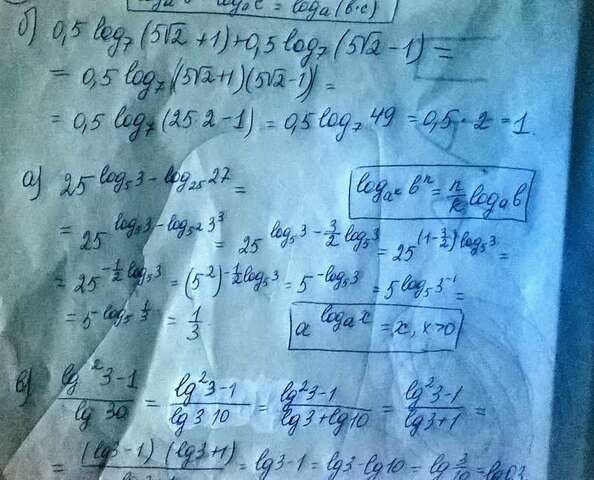 log_a b + log_a c = log_a (b·c)
б) 0,5 log_7 (5√2 + 1) + 0,5 log_7 (5√2 - 1) =
= 0,5 log_7 (5√2+1)(5√2-1) =
= 0,5 log_7 (25·2-1) = 0,5 log_7 49 = 0,5 · 2 = 1.
а) 25^(log_5 3 - log_25 27) =
log_(a^k) b^n = n/k log_a b
= 25^(log_5 3 - log_(5^2) 3^3) = 25^(log_5 3 - 3/2 log_5 3) = 25^((1-3/2) log_5 3) =
= 25^(-1/2 log_5 3) = (5^2)^(-1/2 log_5 3) = 5^(-log_5 3) = 5^(log_5 3^(-1)) =
= 5^(log_5 1/3) = 1/3
a^(log_a x) = x, x>0
в) (lg^2 3-1)/(lg 30) = (lg^2 3-1)/(lg 3·10) = (lg^2 3-1)/(lg 3+lg 10) = (lg^2 3-1)/(lg 3+1) =
= (lg3-1)(lg3+1)/(lg3+1) = lg3-1 = lg3-lg10 = lg 3/10 = lg0,3